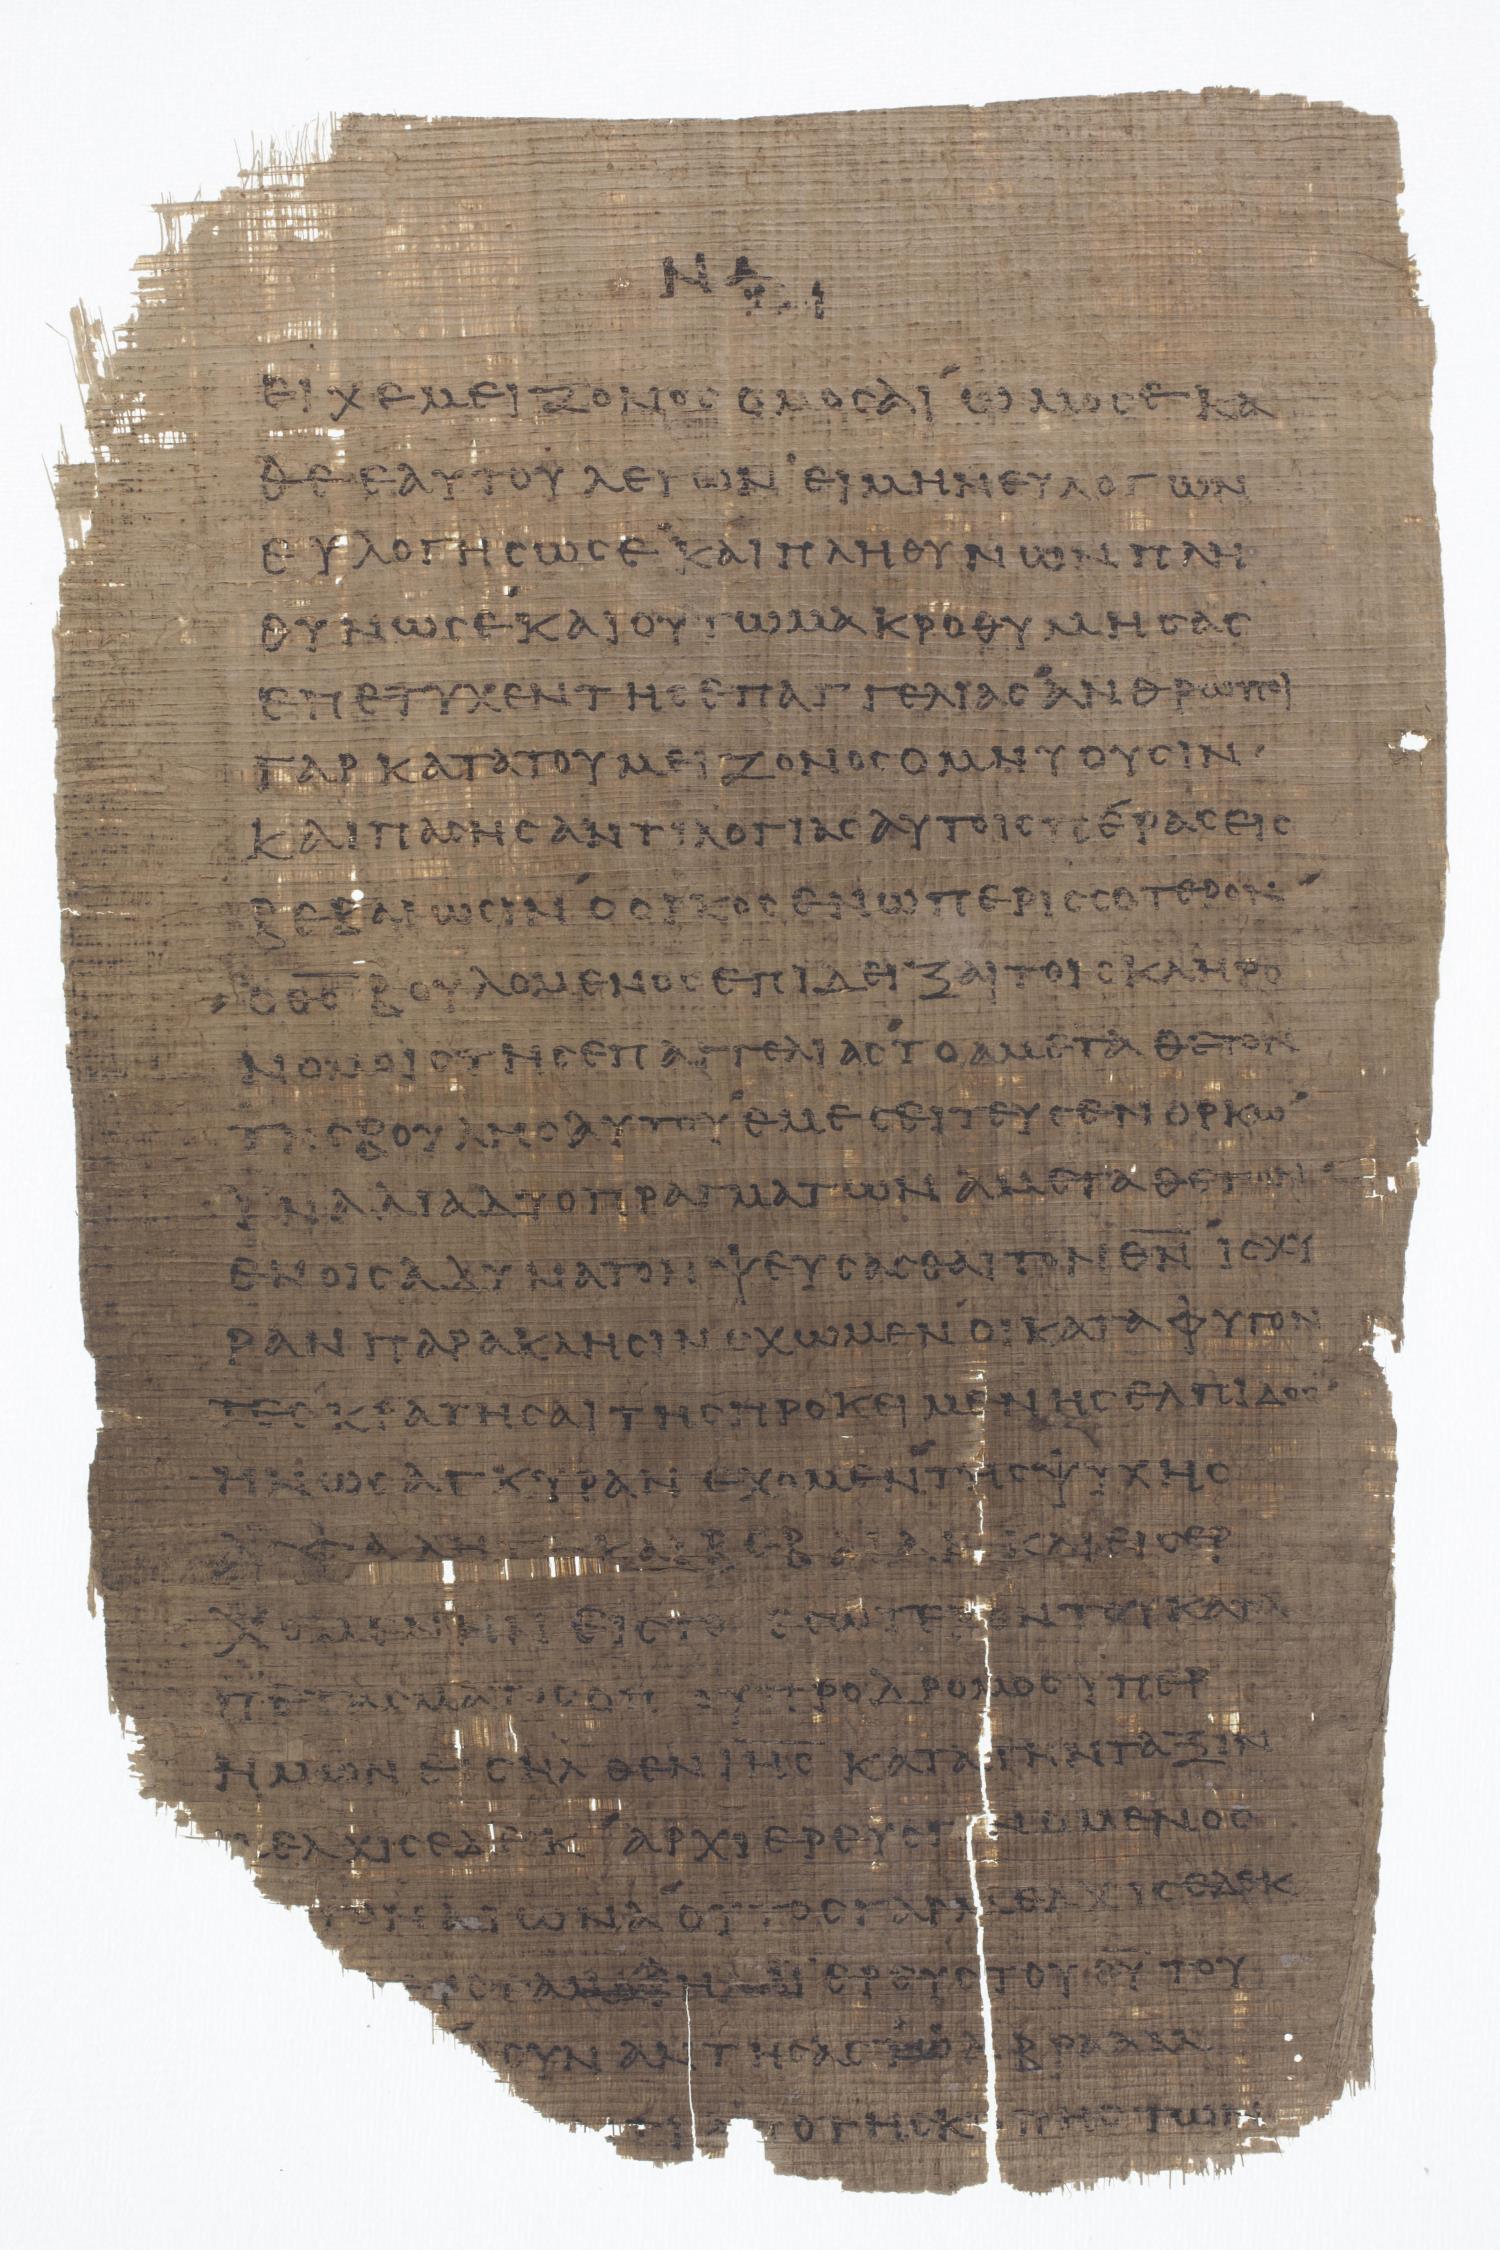 Ν
ειχε μειζονος ομοσαι ωμοσε κα
θ εεαυτου λεγων ει μην ευλογων
ευλογησω σε και πληθυνων πλη
θυνω σε και ουτω μακροθυμησας
επετυχεν της επαγγελιας ανθρωποι
γαρ κατα του μειζονος ομνυουσιν
και πασης αντιλογιας αυτοις περας εις
βεβαιωσιν ο ορκος εν ω περισσοτερον
ο θ̅ς̅ βουλομενος επιδειξαι τοις κληρο
νομοις της επαγγελιας το αμεταθετον
της βουλης αυτου εμεσειτευσεν ορκω
ινα δια δυο πραγματων αμεταθετων
εν οις αδυνατον ψευσασθαι τον θ̅ν̅ ισχυ
ραν παρακλησιν εχωμεν οι καταφυγον
τες κρατησαι της προκειμενης ελπιδος
ην ως αγκυραν εχομεν της ψυχης
βεβαιαν και εισερ
χομενην εις το εσωτερον του κατα
πετασματος οπου προδρομος υπερ
ημων εισηλθεν ι̅η̅ς̅ κατα την ταξιν
μελχισεδεκ αρχιερευς γενομενος
τον αιωνα ουτος γαρ μελχισεδεκ
ιερευς του θ̅υ̅ του
συναντησας αβρααμ
απο της κοπης των